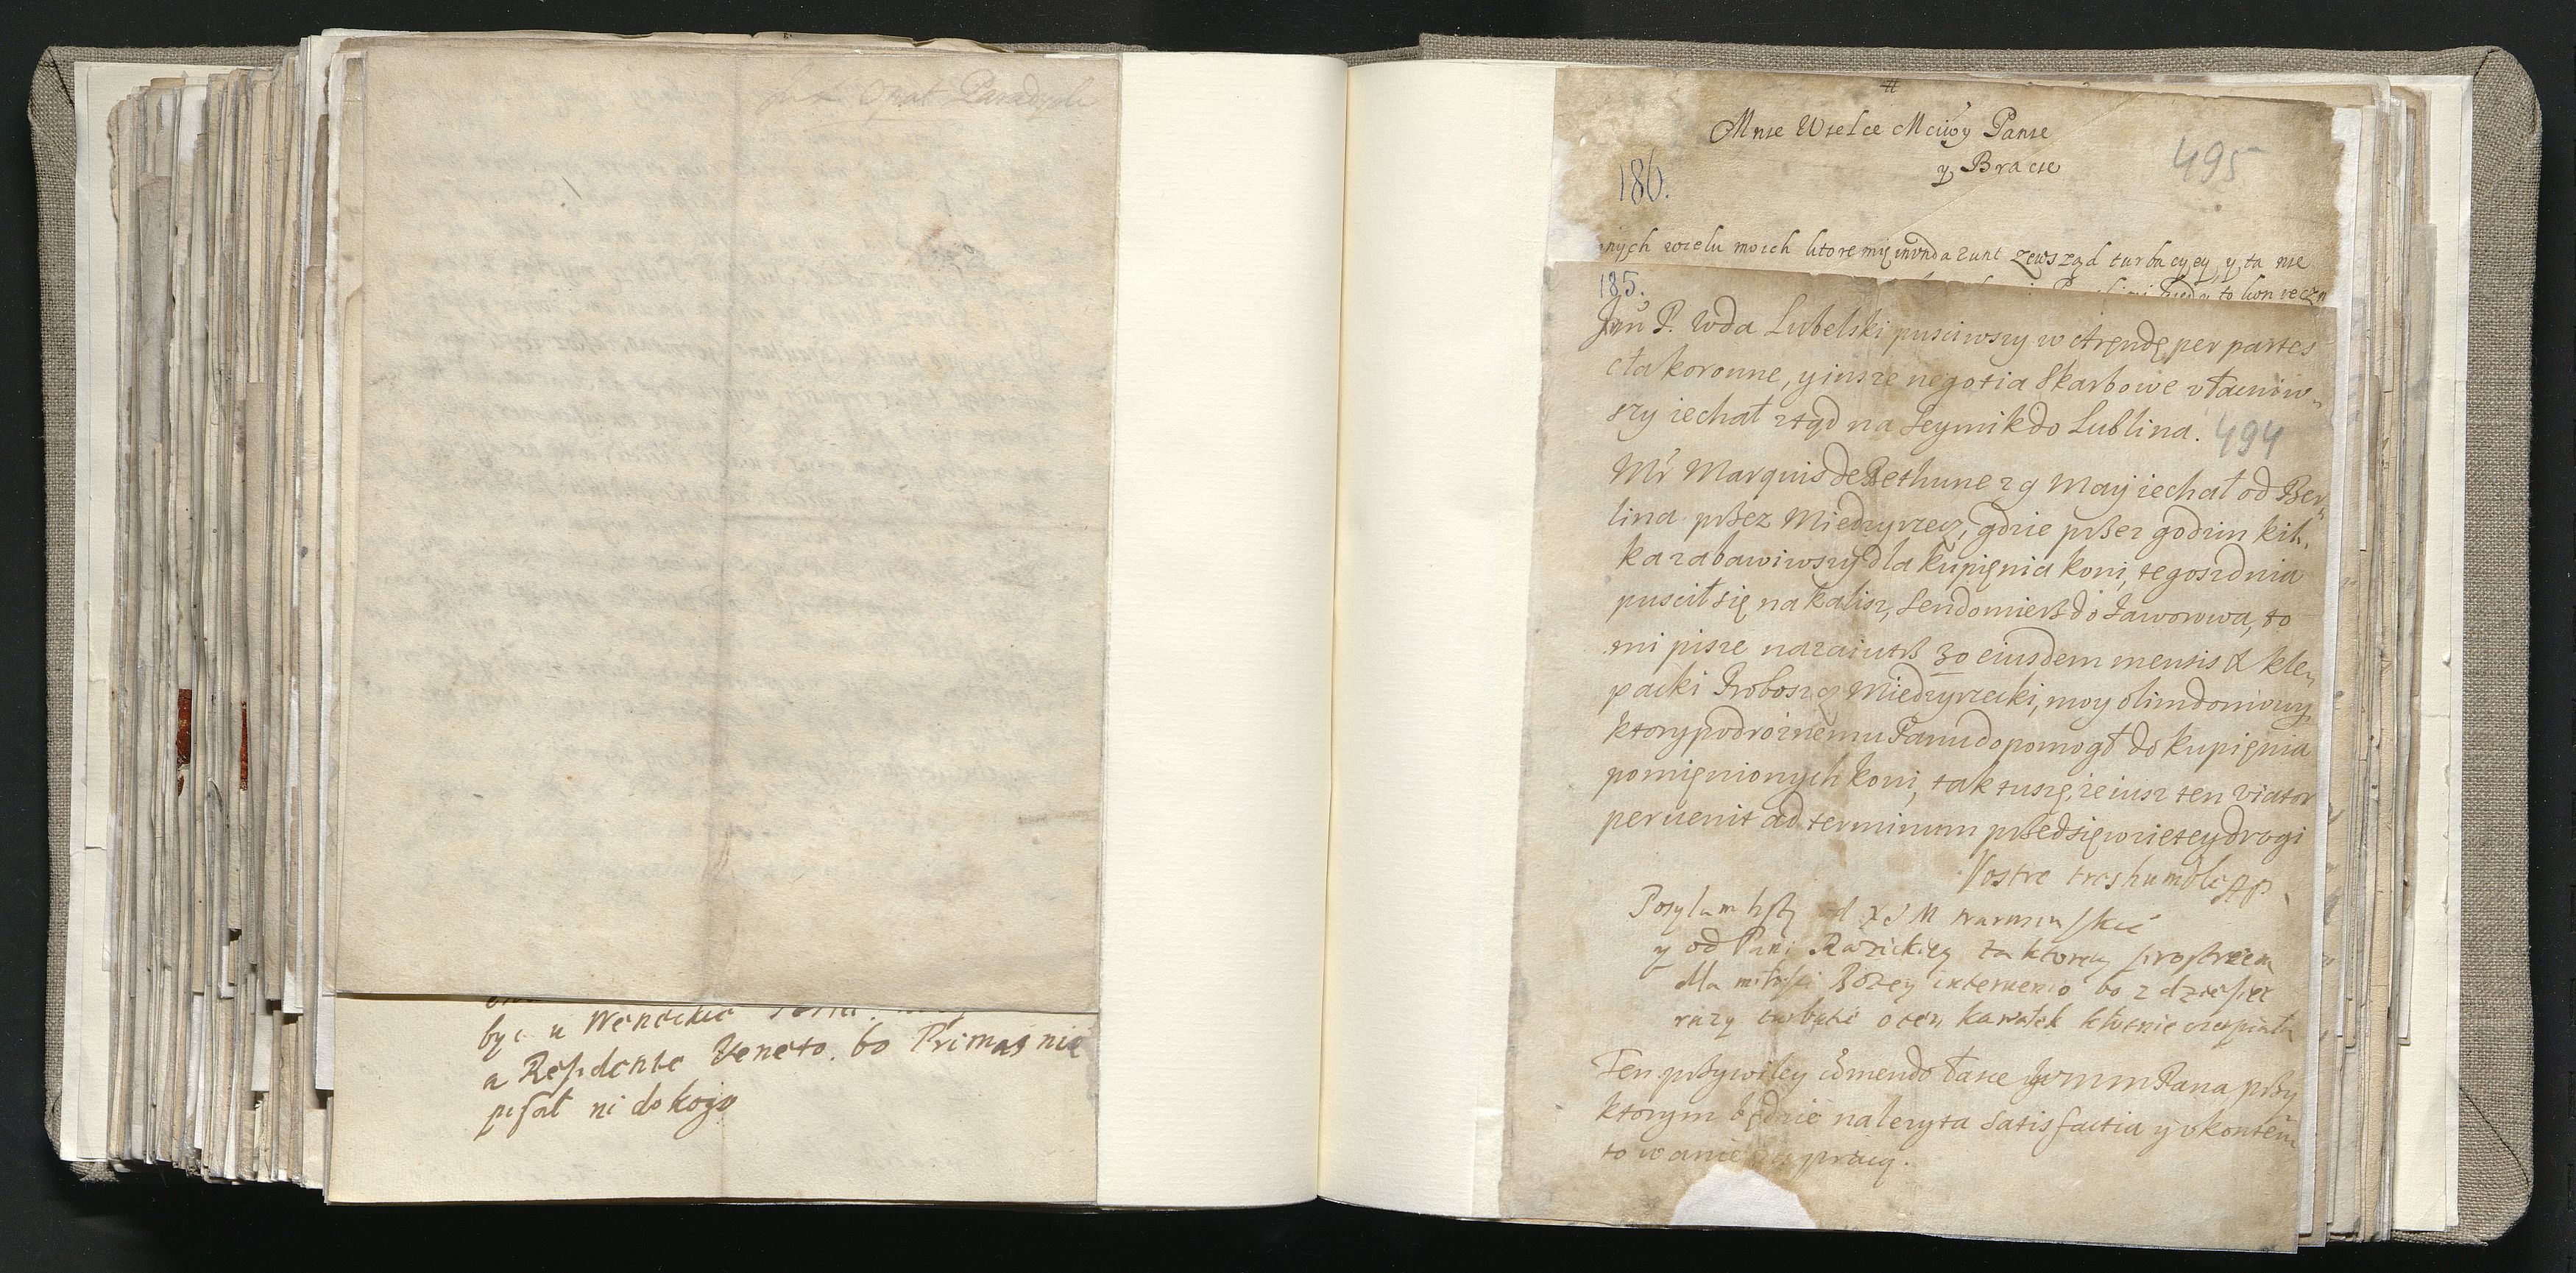 Opat Paradyski
być u
a Residente Veneto. bo Primas nie
pisał ni do kogo
Mnie Wielce Mciwy Panie
y Bracie
495
186.
wielu moich ktore mię inundarunt zewsząd turbacyey, y ta nie
185.
P. Wda Lubelski pusciwszy w Aręndę per partes
cła koronne, y insze negotia Skarbowe vłacniw-
szy iechał ztąd na Seymik do Lublina.
494
Mr Marquis de Bethune 29 Maij iechał od Ber-
lina przez Miedzyrzecz, gdzie przez godzin kil-
ka zabawiwszy dla kupięnia koni, tegosz dnia
puscił się na kalisz, Sendomierz do Jaworowa, to
mi pisze nazaiutrz 30 eiusdem mensis X kle-
packi Proboszcz Miedzyrzecki, moy olim domowy,
ktory podroznemu Panu dopomogł do kupięnia
pomięnionych koni, tak tuszę, ze iusz ten viator
peruenit ad terminum przedsięwzietey drogi
Vostre tres humble
Posylam listy od X J M
y od Pani za ktorey
dla miłości Bozey bo z
razy o ten kawałek
Ten przywiley łasce Pana przy
ktorym będzie nalezyta satisfactia y vkonten-
towanie pracy.